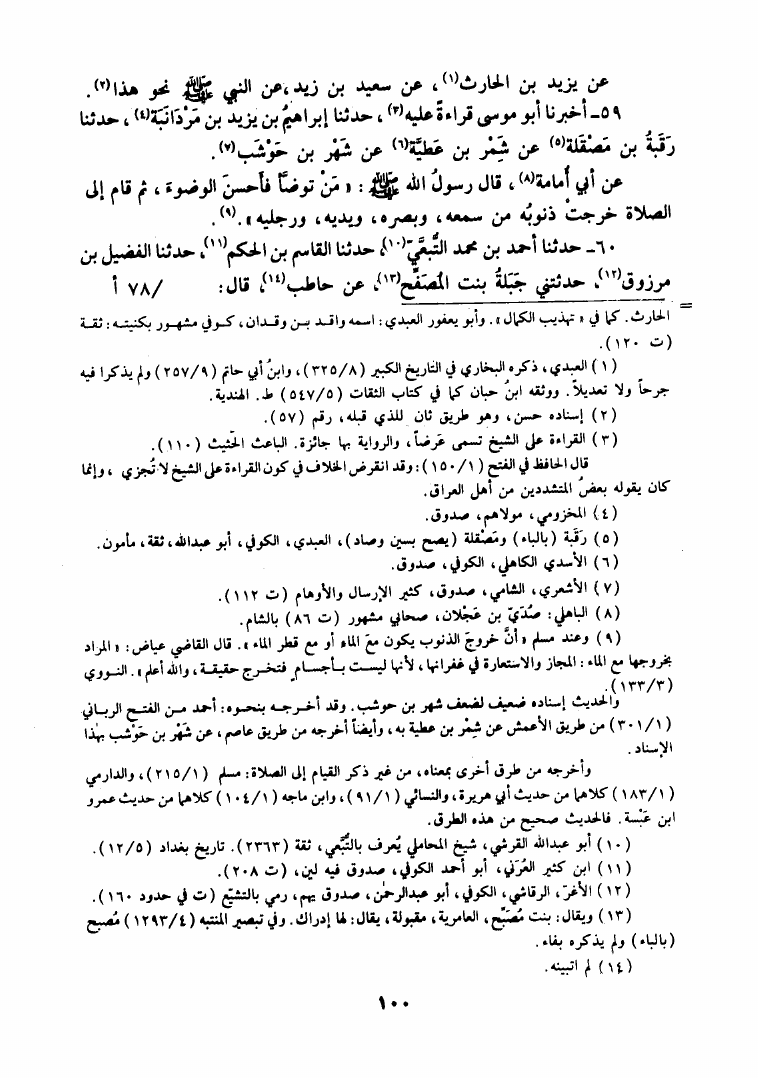 عن يزيد بن الحارث(١)، عن سعيد بن زيد، عن النبي ﷺ نحو هذا(٢).
٥٩ـ أخبرنا أبو موسى قراءةً عليه(٣)، حدثنا إبراهيمُ بن يزيد بن مَرْدَانَبَة(٤)، حدثنا
رَقَبَةُ بن مَصْقَلة(٥) عن شِمْر بن عَطيَّة(٦) عن شَهْر بن حَوْشَب(٧).
عن أبي أُمامة(٨)، قال رسولُ الله ﷺ : « مَنْ توضَّأ فأحسنَ الوضوءَ ، ثم قام إلى
الصلاة خرجتْ ذنوبُه من سمعه ، وبصره ، ويديه ، ورجليه » .(٩).
٦٠ـ حدثنا أحمد بن محمد التُّبعيّ(١٠)، حدثنا القاسم بن الحكم(١١)، حدثنا الفضيل بن
مرزوق(١٢)، حدثتني جَبَلةُ بنت المُصَفَّح(١٣)، عن حاطب(١٤)، قال: /٧٨ أ
=
الحارث. كما في « تهذيب الكمال ». وأبو يعفور العبدي: اسمه واقد بن وقدان، كوفي مشهور بكنيته: ثقة
(ت ١٢٠).
(١) العبدي، ذكره البخاري في التاريخ الكبير (٣٢٥/٨)، وابنُ أبي حاتم (٢٥٧/٩) ولم يذكرا فيه
جرحاً ولا تعديلاً. ووثقه ابنُ حبان كما في كتاب الثقات (٥٤٧/٥) ط. الهندية.
(٢) إسناده حسن، وهو طريق ثان للذي قبله، رقم (٥٧).
(٣) القراءة على الشيخ تسمى عَرضاً، والرواية بها جائزة. الباعث الحثيث (١١٠).
قال الحافظ في الفتح (١٥٠/١): وقد انقرض الخلاف في كون القراءة على الشيخ لا تُجزي ، وإنما
كان يقوله بعضُ المتشددين من أهل العراق.
(٤) المخزومي، مولاهم، صدوق.
(٥) رَقَبة (بالباء) ومَصْقلة (يصح بسين وصاد)، العبدي، الكوفي، أبو عبدالله، ثقة، مأمون.
(٦) الأسدي الكاهلي، الكوفي، صدوق.
(٧) الأشعري، الشامي، صدوق، كثير الإرسال والأوهام (ت ١١٢).
(٨) الباهلي: صُدَيّ بن عَجْلان، صحابي مشهور (ت ٨٦) بالشام.
(٩) وعند مسلم « أنَّ خروجَ الذنوب يكون معَ الماء أو مع قطر الماء ». قال القاضي عياض: « المراد
بخروجها مع الماء : المجاز والاستعارة في غفرانها ، لأنها ليست بأجسام فتخرج حقيقة، والله أعلم ». النووي
(١٣٣/٣).
والحديث إسناده ضعيف لضعف شهر بن حوشب. وقد أخرجه بنحوه: أحمد من الفتح الرباني
(٣٠١/١) من طريق الأعمش عن شِمْر بن عطية به، وأيضاً أخرجه من طريق عاصم، عن شَهْر بن حَوْشب بهذا
الإسناد.
وأخرجه من طرق أخرى بمعناه، من غير ذكر القيام إلى الصلاة: مسلم (٢١٥/١)، والدارمي
(١٨٣/١) كلاهما من حديث أبي هريرة، والنسائي (٩١/١)، وابن ماجه (١٠٤/١) كلاهما من حديث عمرو
ابن عَبْسة. فالحديث صحيح من هذه الطرق.
(١٠) أبو عبدالله القرشي، شيخ المحاملي يُعرف بالتُّبَّعي، ثقة (٢٣٦٣). تاريخ بغداد (١٢/٥).
(١١) ابن كثير العُرَني، أبو أحمد الكوفي، صدوق فيه لين، (ت ٢٠٨).
(١٢) الأغرّ، الرقاشي، الكوفي، أبو عبدالرحمٰن، صدوق يهم، رمي بالتشيّع (ت في حدود ١٦٠).
(١٣) ويقال: بنت مُصَبّح، العامرية، مقبولة، يقال: لها إدراك. وفي تبصير المنتبه (١٢٩٣/٤) مُصبح
(بالباء) ولم يذكره بفاء.
(١٤) لم اتبينه.
١٠٠